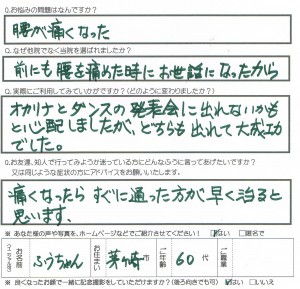 Q.お悩みの問題はなんですか？
腰が痛くなった
Q.なぜ他院でなく当院を選ばれましたか？
前にも腰を痛めた時にお世話になったから
Q.実際にご利用してみていかがですか？（どのように変わりましたか？）
オカリナとダンスの発表会に出れないかも
と心配しましたが、どちらも出れて大成功
でした。
Q.お友達、知人で行ってみようか迷っている方にどんなふうに言ってあげたいですか？
又は同じような症状の方にアドバイスをお願いいたします。
痛くなったら すぐに通った方が早く治ると
思います。
※ あなた様の声や写真を、ホームページなどでご紹介させてください！ はい □匿名で
お名前 ふうちゃん お住まい 茅ヶ崎市 ご年齢 60代 ご職業
※ 良くなったお顔で一緒に記念撮影をしていただけますか？（後ろ向きでも可） はい □いいえ